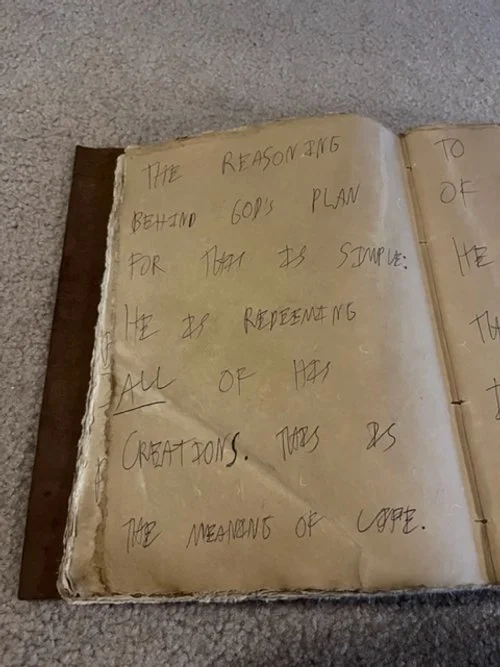 THE REASONING
BEHIND GOD'S PLAN
FOR THAT IS SIMPLE:
HE IS REDEEMING
ALL OF HIS
CREATIONS. THIS IS
THE MEANING OF LIFE.
TO
OF
HE